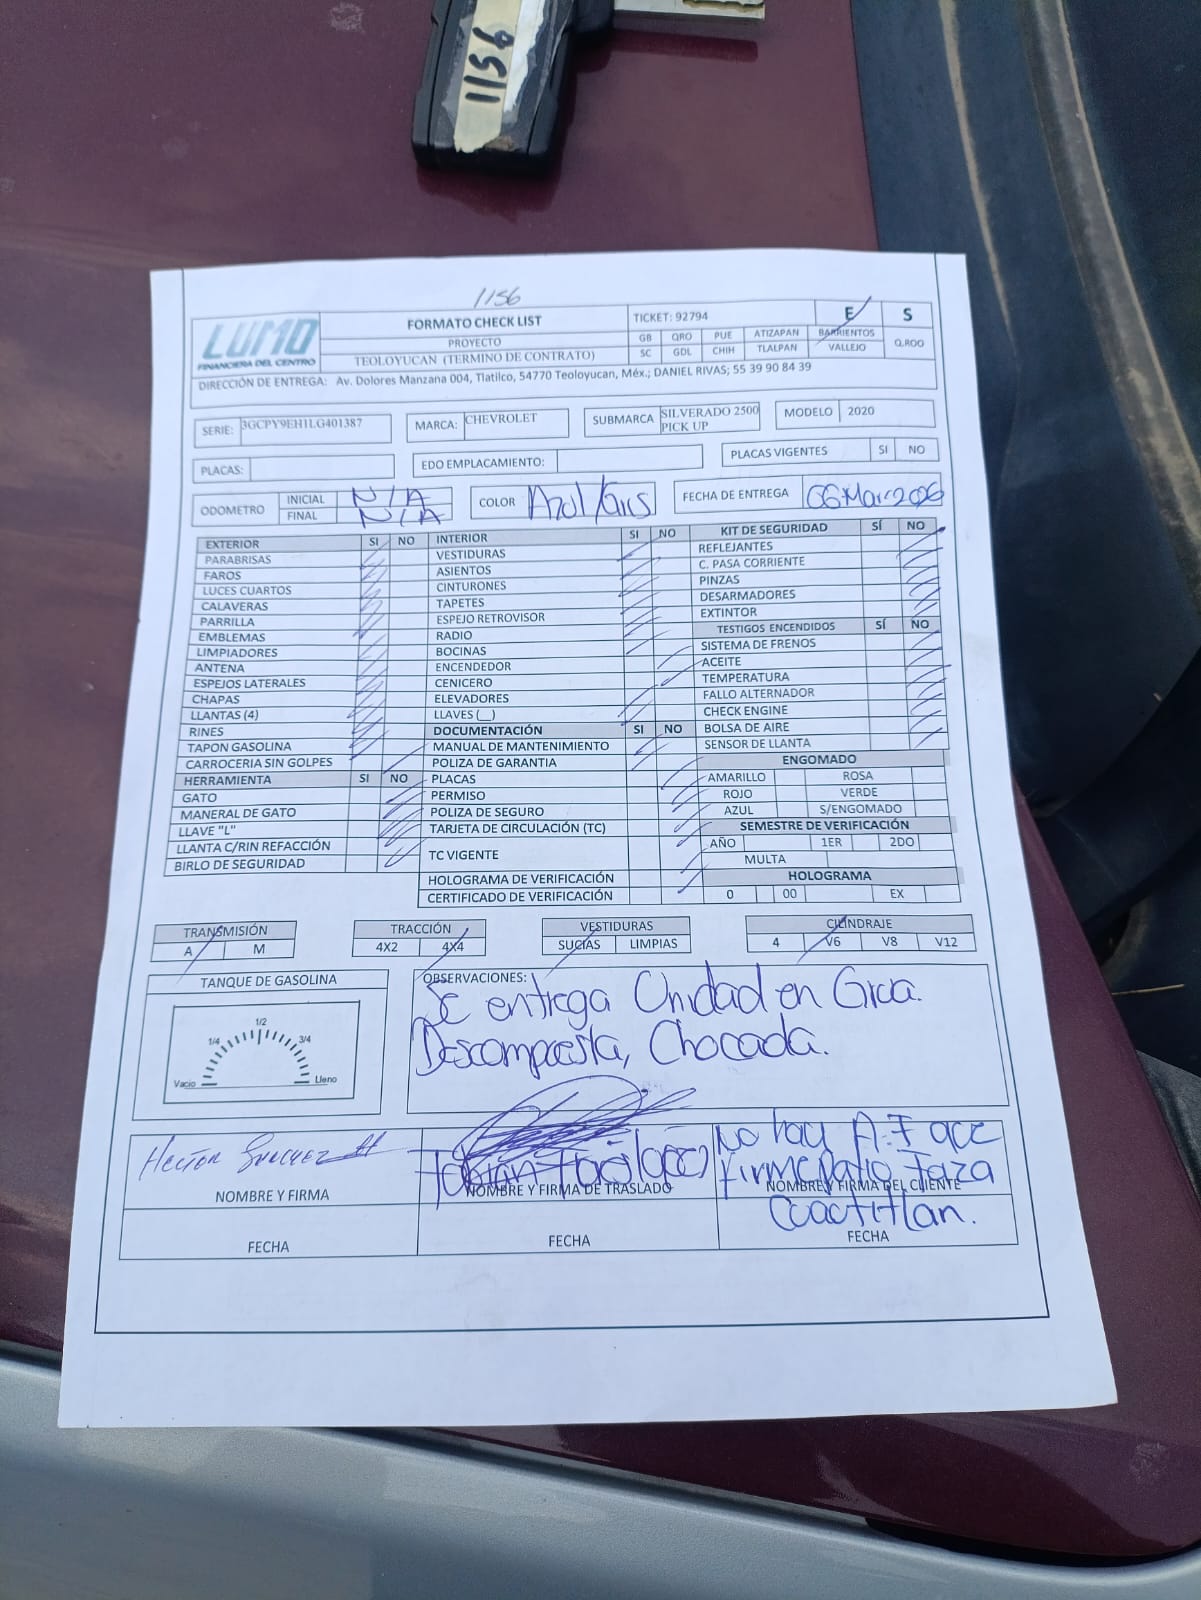 1156
1156
LUMO
FINANCIERA DEL CENTRO
FORMATO CHECK LIST
PROYECTO
TEOLOYUCAN (TERMINO DE CONTRATO)
TICKET: 92794 E S
GB QRO PUE ATIZAPAN BARRIENTOS Q.ROO
SC GDL CHIH TLALPAN VALLEJO
DIRECCIÓN DE ENTREGA: Av. Dolores Manzana 004, Tlatilco, 54770 Teoloyucan, Méx.; DANIEL RIVAS; 55 39 90 84 39
SERIE: 3GCPY9EH1LG401387 MARCA: CHEVROLET SUBMARCA SILVERADO 2500 PICK UP MODELO 2020
PLACAS: EDO EMPLACAMIENTO: PLACAS VIGENTES SI NO
ODOMETRO INICIAL N/A COLOR Azul/Gris FECHA DE ENTREGA 06 Mar 2026
FINAL N/A
EXTERIOR SI NO
PARABRISAS
FAROS
LUCES CUARTOS
CALAVERAS
PARRILLA
EMBLEMAS
LIMPIADORES
ANTENA
ESPEJOS LATERALES
CHAPAS
LLANTAS (4)
RINES
TAPON GASOLINA
CARROCERIA SIN GOLPES
HERRAMIENTA SI NO
GATO
MANERAL DE GATO
LLAVE "L"
LLANTA C/RIN REFACCIÓN
BIRLO DE SEGURIDAD
INTERIOR SI NO
VESTIDURAS
ASIENTOS
CINTURONES
TAPETES
ESPEJO RETROVISOR
RADIO
BOCINAS
ENCENDEDOR
CENICERO
ELEVADORES
LLAVES (__)
DOCUMENTACIÓN SI NO
MANUAL DE MANTENIMIENTO
POLIZA DE GARANTIA
PLACAS
PERMISO
POLIZA DE SEGURO
TARJETA DE CIRCULACIÓN (TC)
TC VIGENTE
HOLOGRAMA DE VERIFICACIÓN
CERTIFICADO DE VERIFICACIÓN
KIT DE SEGURIDAD SÍ NO
REFLEJANTES
C. PASA CORRIENTE
PINZAS
DESARMADORES
EXTINTOR
TESTIGOS ENCENDIDOS SÍ NO
SISTEMA DE FRENOS
ACEITE
TEMPERATURA
FALLO ALTERNADOR
CHECK ENGINE
BOLSA DE AIRE
SENSOR DE LLANTA
ENGOMADO
AMARILLO ROSA
ROJO VERDE
AZUL S/ENGOMADO
SEMESTRE DE VERIFICACIÓN
AÑO 1ER 2DO
MULTA
HOLOGRAMA
0 00 EX
TRANSMISIÓN
A M
TRACCIÓN
4X2 4X4
VESTIDURAS
SUCIAS LIMPIAS
CILINDRAJE
4 V6 V8 V12
TANQUE DE GASOLINA
1/2
1/4 3/4
Vacio Lleno
OBSERVACIONES:
Se entrega Unidad en Grua.
Descompuesta, Chocada.
Hector
NOMBRE Y FIRMA
FECHA
Fabian
NOMBRE Y FIRMA DE TRASLADO
FECHA
No hay
firme Patio
NOMBRE Y FIRMA DEL CLIENTE
Cuactitlan.
FECHA